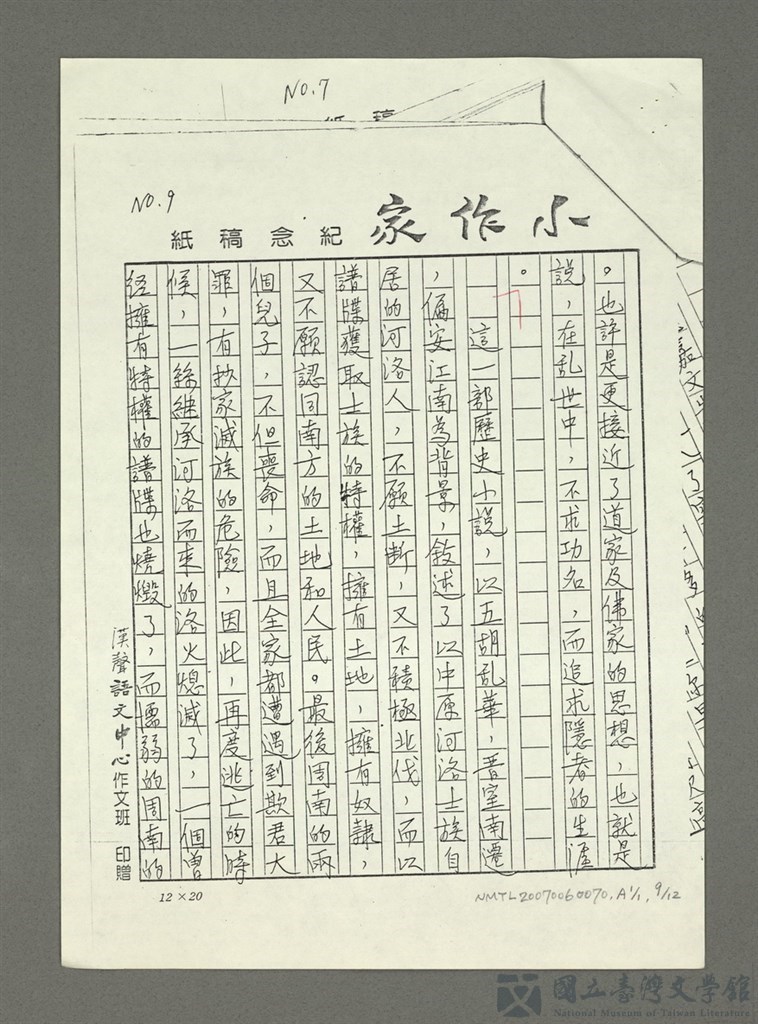 NO.7
紙 稿
NO.9
小作家
紀念稿紙
。也許是更接近了道家及佛家的思想，也就是
說，在乱世中，不求功名，而追求隱者的生涯
。
這一部歷史小說，以五胡乱華，晋室南遷
，偏安江南為背景，敘述了以中原河洛士族自
居的河洛人，不願土断，又不積極北伐，而以
譜牒獲取士族的特權，擁有土地，擁有奴隷，
又不願認同南方的土地和人民。最後周南的兩
個兒子，不但喪命，而且全家都遭遇到欺君大
罪，有抄家滅族的危險，因此，再度逃亡的時
候，一絲継承河洛而来的洛火熄滅了，一個曾
经擁有特權的譜牒也燒燬了，而懦弱的周南的
漢聲語文中心作文班 印贈
12×20
NMTL20070060070.A1/1, 9/12
國立臺灣文學館
National Museum of Taiwan Literature